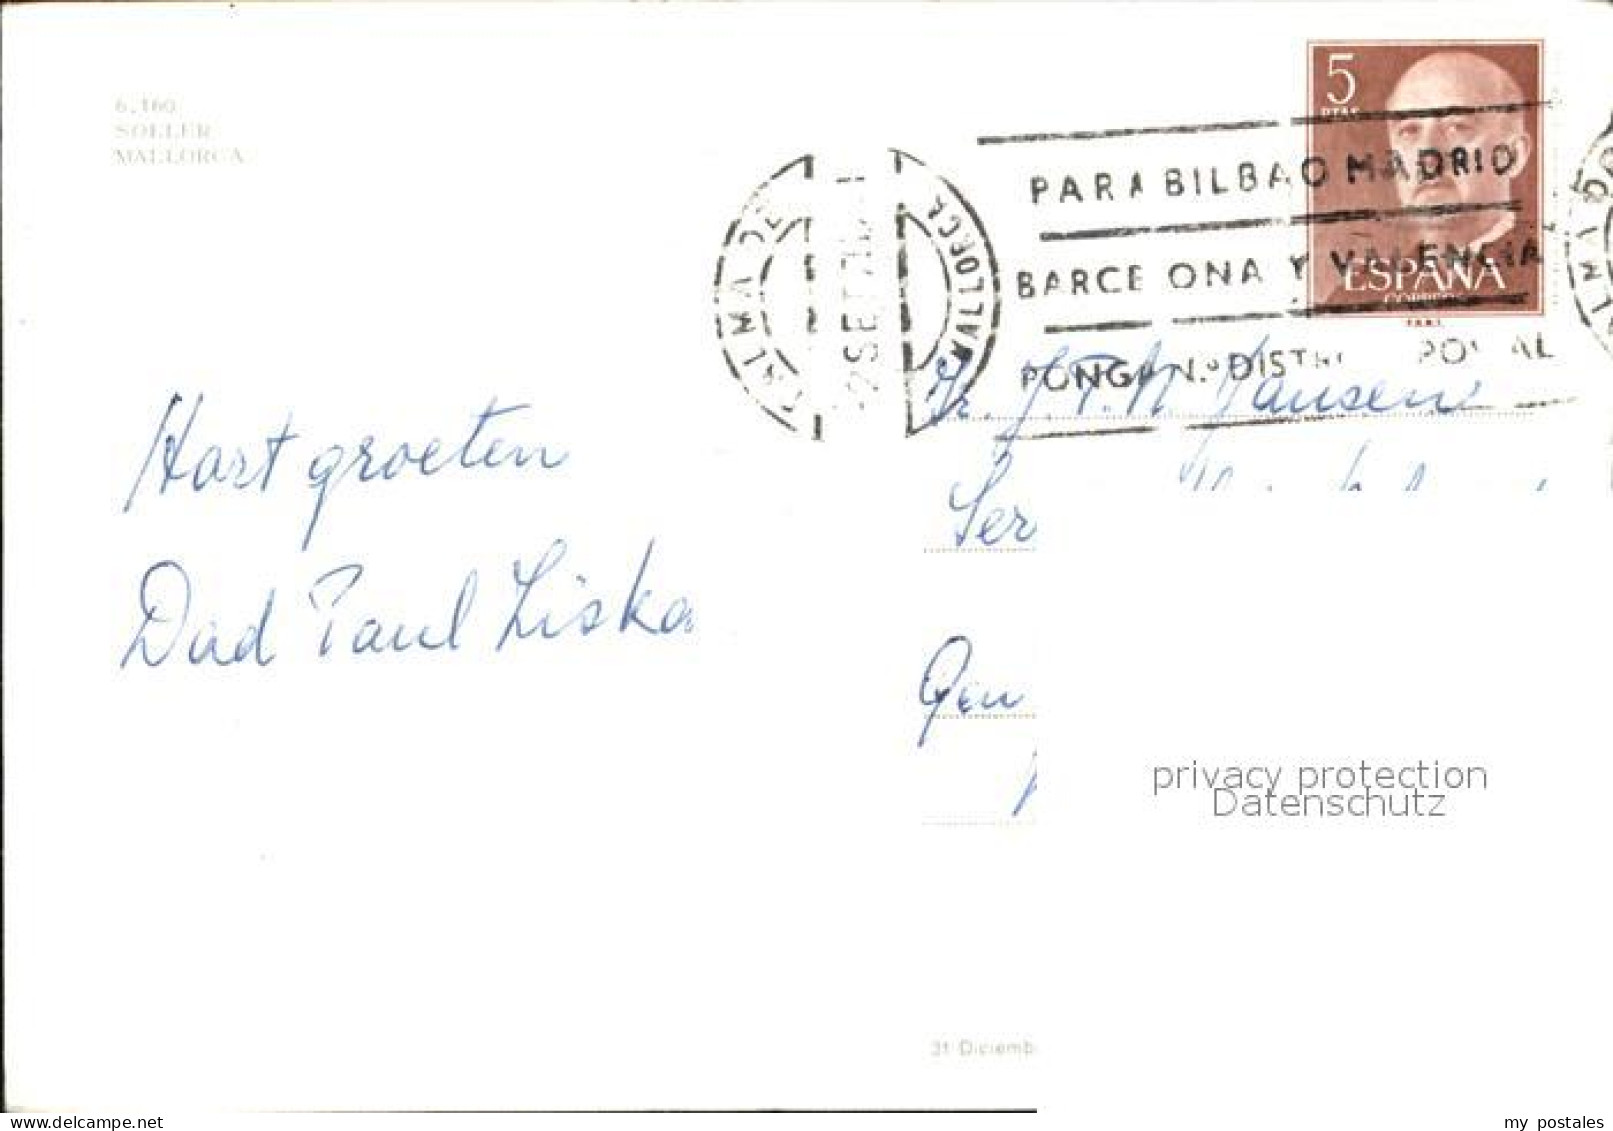 6.160
SOLLER
MALLORCA
5
PTAS
ESPAÑA
CORREOS
PALMA DE MALLORCA
2 SET 7
PARA BILBAO MADRID
BARCELONA Y VALENCIA
PONGA N.º DISTRI POSTAL
Hart groeten
Dad Paul Liska
Hr. J.P.N. Jansen
Ser
Gen
privacy protection
Datenschutz
31 Diciemb
delcampe.net
my_postales